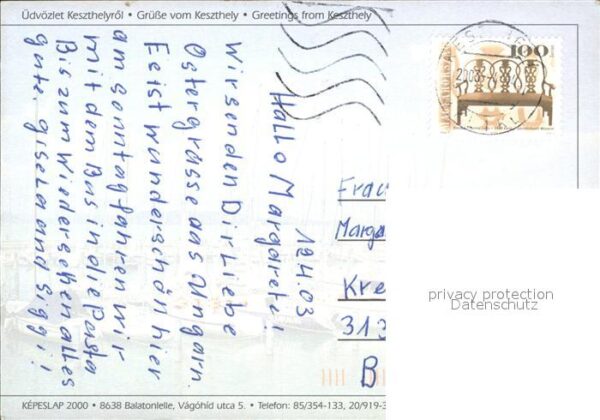 Üdvözlet Keszthelyről • Grüße vom Keszthely • Greetings from Keszthely
100
19.4.03
Hallo Margarete!
Wir senden Dir liebe
Ostergrüsse aus Ungarn.
Es ist wunderschön hier
am Sonntag fahren wir
mit dem Bus in die Pusta
Bis zum Wiedersehen alles
gute. Gisela und Siggi!
Frau
Marga
Kre
313
B
privacy protection
Datenschutz
KÉPESLAP 2000 • 8638 Balatonlelle, Vágóhíd utca 5. • Telefon: 85/354-133, 20/919-3